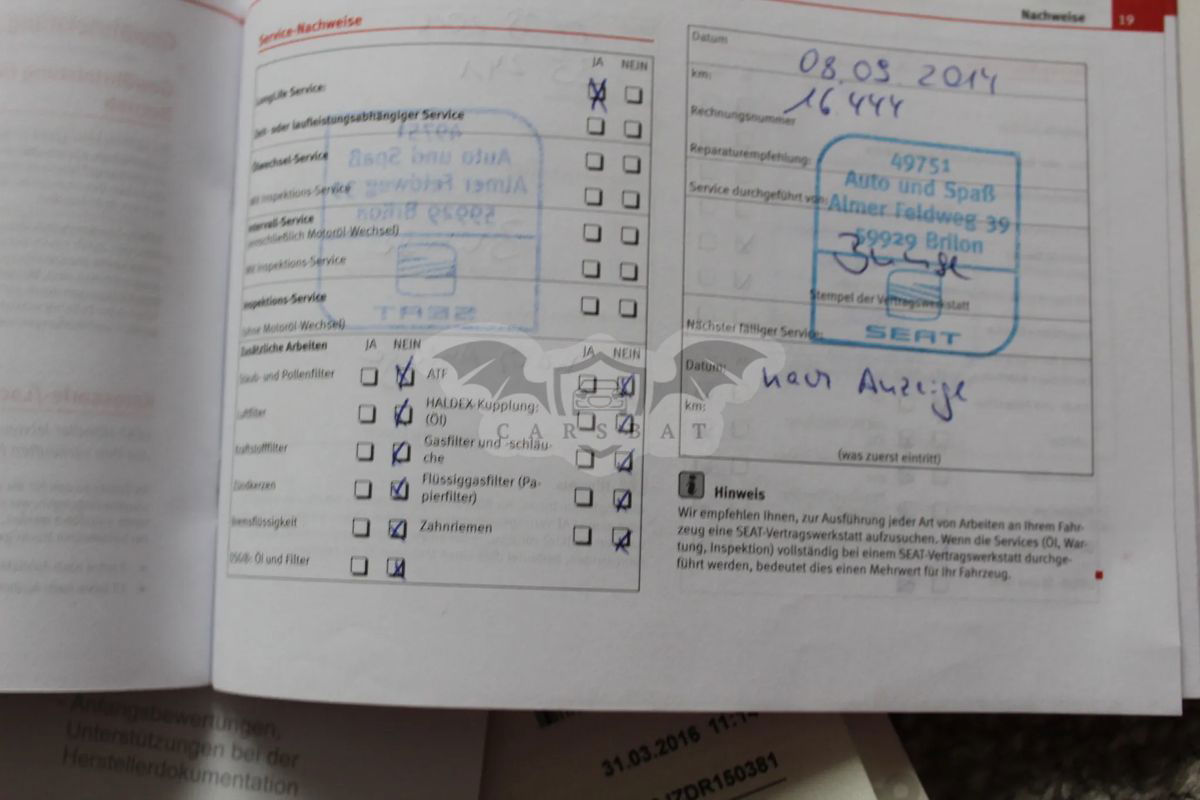 Nachweise 19
Service-Nachweise
JA NEIN
LongLife Service:
Zeit- oder laufleistungsabhängiger Service
Ölwechsel-Service
Mit Inspektions-Service
Intervall-Service
(einschließlich Motoröl-Wechsel)
Mit Inspektions-Service
Inspektions-Service
(ohne Motoröl-Wechsel)
Zusätzliche Arbeiten JA NEIN JA NEIN
Staub- und Pollenfilter ATF
Luftfilter HALDEX-Kupplung:
(Öl)
Kraftstofffilter Gasfilter und -schläu-
che
Zündkerzen Flüssiggasfilter (Pa-
pierfilter)
Bremsflüssigkeit Zahnriemen
DSG®: Öl und Filter
Datum 08.09.2014
km: 16.444
Rechnungsnummer
Reparaturempfehlung:
Service durchgeführt von:
49751
Auto und Spaß
Almer Feldweg 39
59929 Brilon
Stempel der Vertragswerkstatt
SEAT
Nächster fälliger Service:
Datum: nach Anzeige
km:
(was zuerst eintritt)
Hinweis
Wir empfehlen Ihnen, zur Ausführung jeder Art von Arbeiten an Ihrem Fahr-
zeug eine SEAT-Vertragswerkstatt aufzusuchen. Wenn die Services (Öl, War-
tung, Inspektion) vollständig bei einem SEAT-Vertragswerkstatt durchge-
führt werden, bedeutet dies einen Mehrwert für Ihr Fahrzeug.
CARSBAT
- Anfangsbewertungen,
Unterstützungen bei der
Herstellerdokumentation
31.03.2016 11:14
JZDR150381